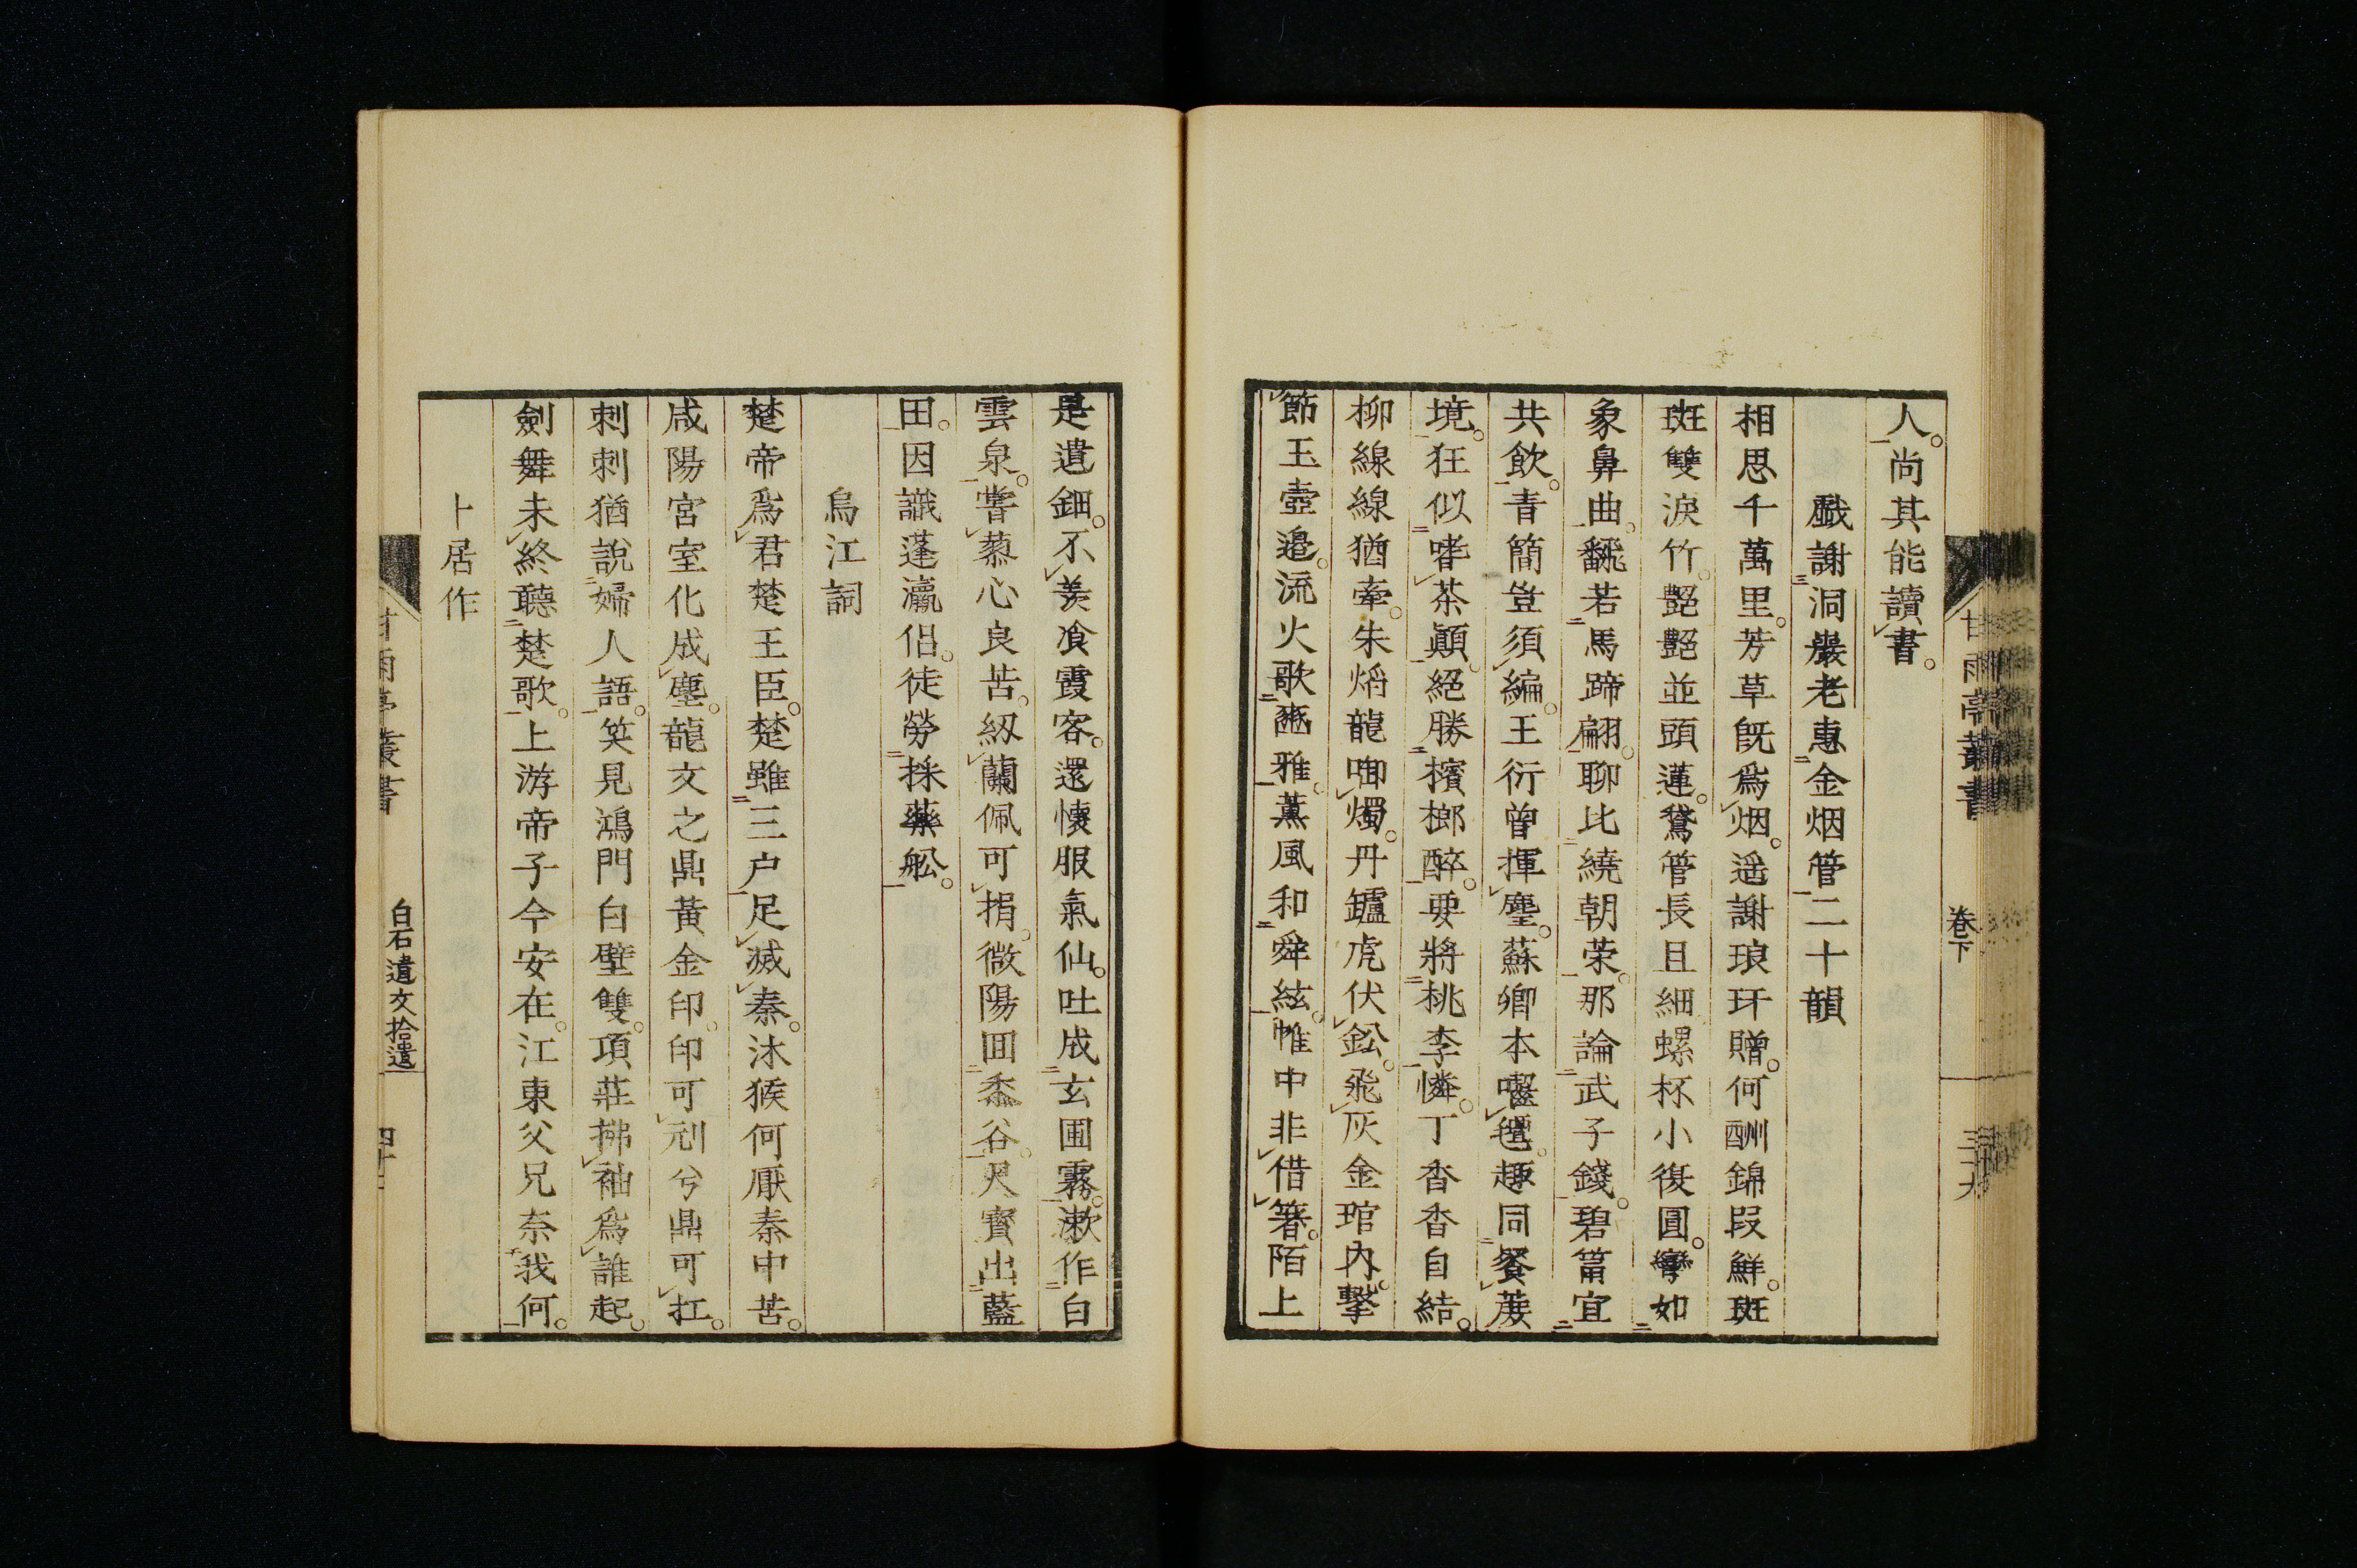 人。尚其能讀書。
戲謝洞巖老惠金烟管二十韻
相思千萬里。芳草旣爲烟。遥謝琅玕贈。何酬錦段鮮。斑
斑雙淚竹。艷艷並頭蓮。鵞管長且細。螺杯小復圓。彎如
象鼻曲。翻若馬蹄翩。聊比繞朝策。那論武子錢。碧筩宜
共飲。青簡豈須編。王衍曾揮麈。蘇卿本囓氊。趣同餐蔗
境。狂似嗜茶顚。絕勝檳榔醉。要將桃李憐。丁香香自結。
柳線線猶牽。朱焰龍啣燭。丹鑪虎伏鈆。飛灰金琯內。擊
節玉壺邉。流火歌豳雅。薰風和舜絃。帷中非借箸。陌上
卷下
是遺鈿。不羨飡霞客。還懐服氣仙。吐成玄圃霧。漱作白
雲泉。甞蓼心良苦。紉蘭佩可捐。微陽回黍谷。尺寶出藍
田。因識蓬瀛侣。徒勞採藥舩。
烏江詞
楚帝爲君楚王臣。楚雖三户足滅秦。沐猴何厭秦中苦。
咸陽宮室化成塵。龍文之鼎黃金印。印可刓兮鼎可扛。
刺刺猶說婦人語。笑見鴻門白壁雙。項莊拂袖爲誰起。
劍舞未終聽楚歌。上游帝子今安在。江東父兄奈我何。
卜居作
白石遺文拾遺